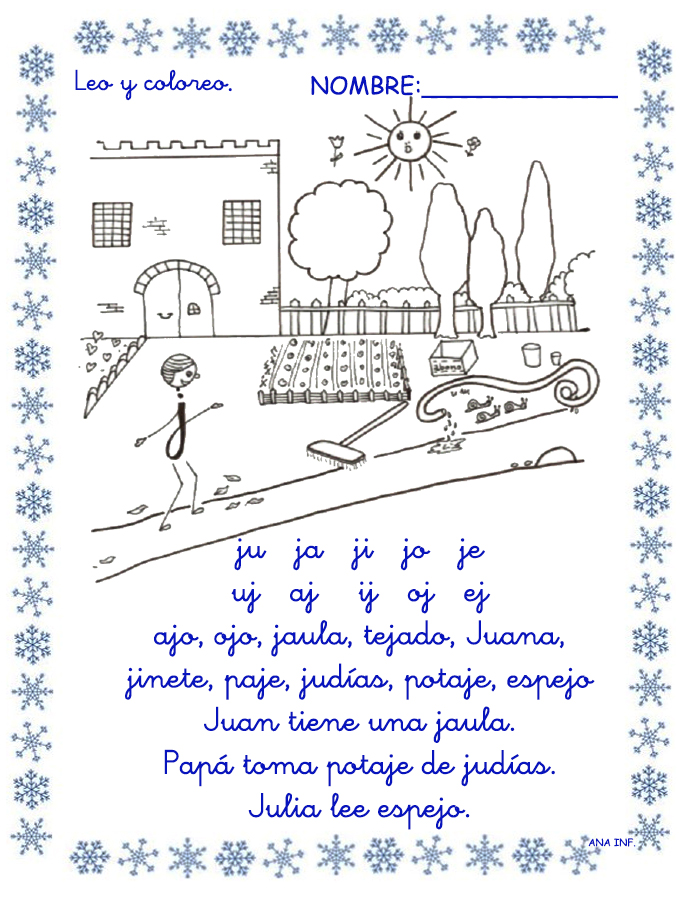 Leo y coloreo.
NOMBRE:______________
Abono
ju ja ji jo je
uj aj ij oj ej
ajo, ojo, jaula, tejado, Juana,
jinete, paje, judías, potaje, espejo
Juan tiene una jaula.
Papá toma potaje de judías.
Julia lee espejo.
ANA INF.